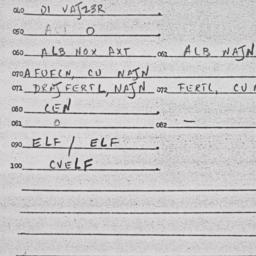 040 DI VAJZBR
050 O
060 ALB NOX AXT 061 ALB NAJN
070 AFUFCN, CU NAJN
071 DRAJFERTL, NAJN 072 FERTL, CU N
080 CEN
081 O 082 —
090 ELF / ELF
100 CVELF